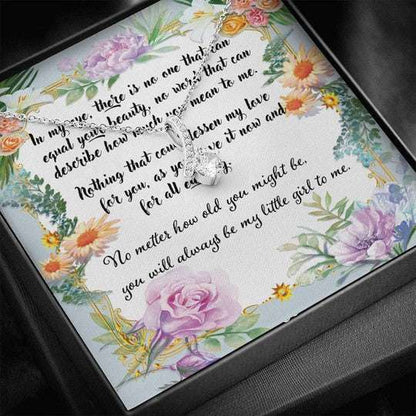 In my eye, there is no one that can
equal your beauty, no word that can
describe how much you mean to me.
Nothing that could lessen my love
for you, as you have it now and
for all
No metter how old you might be,
you will always be my little girl to me.